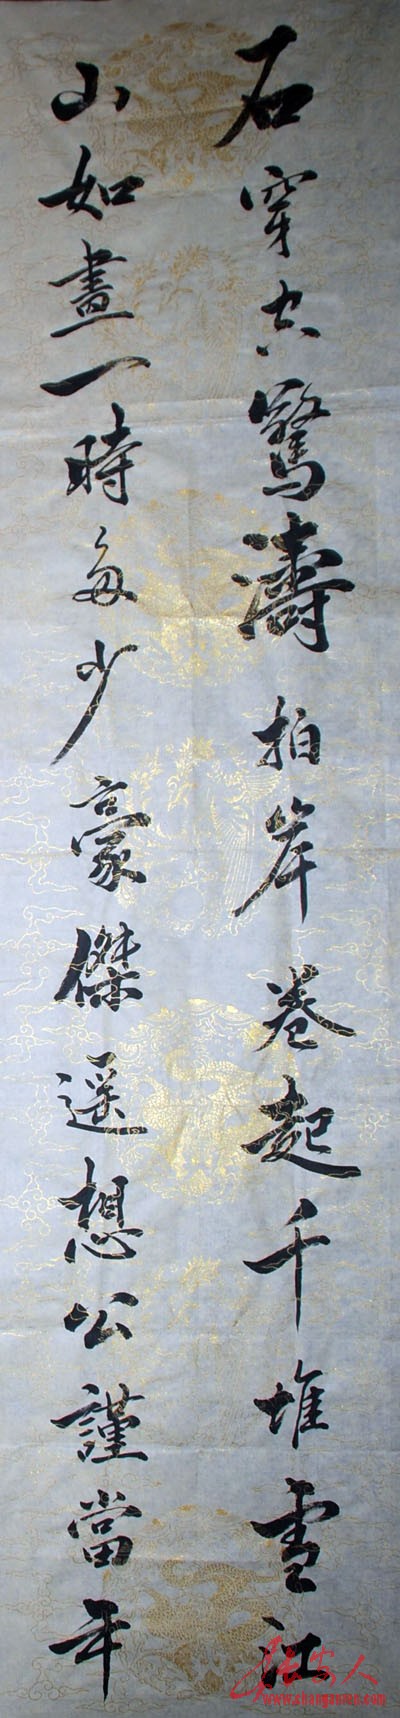 石穿空驚濤拍岸卷起千堆雪江
山如畫一時多少豪傑遥想公謹當年
长安人
www.changanren.com